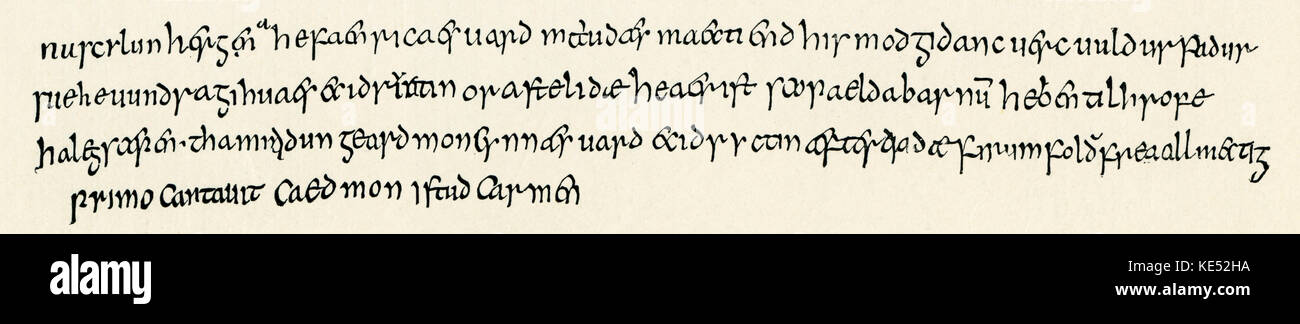 nuscylun hergan hefaenricaes uard metudæs maecti end his modgidanc uerc uuldurfadur
sue he uundra gihuaes eci dryctin or astelidæ he aerist scop aelda barnū heben til hrofe
haleg scepen. tha middungeard moncynnæs uard eci dryctin æfter tiadæ firum foldu frea allmectig
primo cantauit Caedmon istud carmen
alamy
alamy
Image ID: KE52HA
www.alamy.com